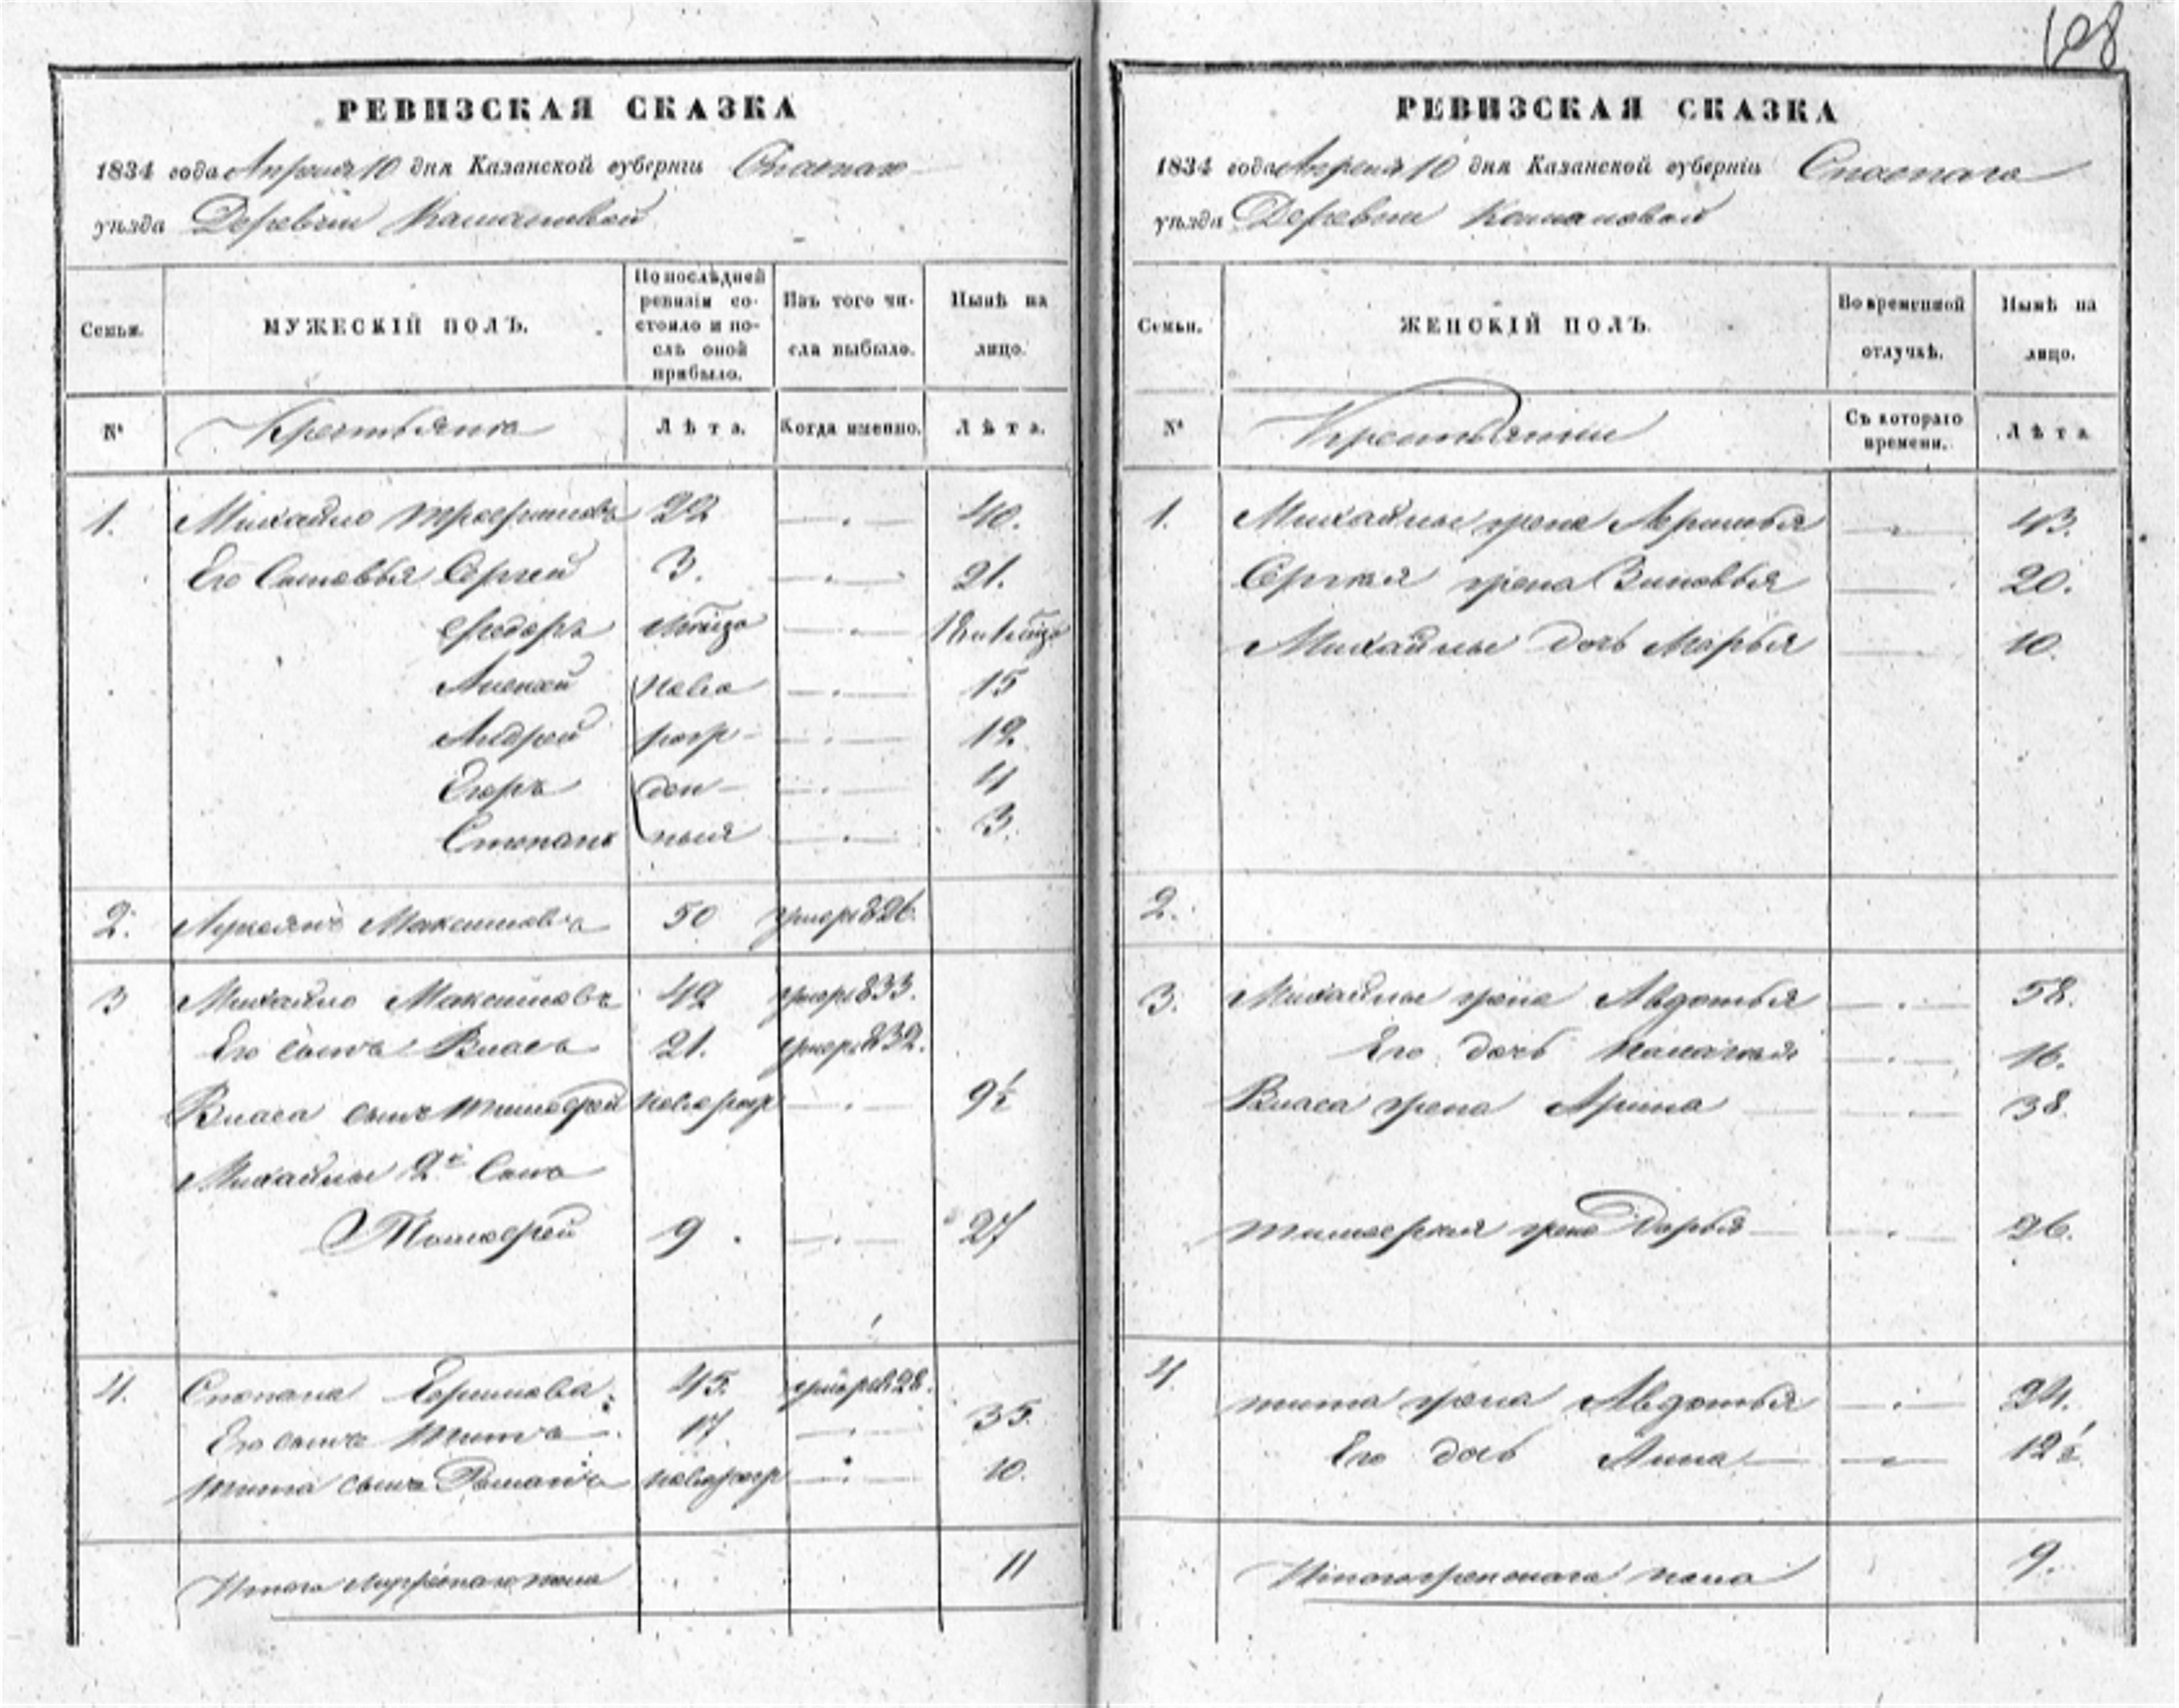 108
РЕВИЗСКАЯ СКАЗКА
1834 года Апреля 10 дня Казанской губерніи Спаскаго
уѣзда Деревни
Семьи.
МУЖЕСКІЙ ПОЛЪ.
По послѣдней ревизіи состояло и послѣ оной прибыло.
Изъ того числа выбыло.
Нынѣ на лицо.
№
Крестьяна
Лѣта.
Когда именно.
Лѣта.
1. Михайло Трофимовъ 22 40.
Его Сыновья Сергей 3. 21.
Федоръ
Алексей ново 15
Андрей рож- 12
Егоръ ден- 4
Степанъ ныя 3.
2. Максимовъ 50 умеръ 826.
3 Михайло Максимовъ 42 умеръ 833.
Его сынъ Власъ 21. умеръ 832.
Власа сынъ Тимофей новорож 9½
Михайлы 2й Сынъ
Тимофей 9. 27
4. Степанъ 45. умеръ 828.
Его сынъ Титъ 17 35.
Тита сынъ Романъ новорож 10.
Итого мужескаго пола 11
РЕВИЗСКАЯ СКАЗКА
1834 года Апреля 10 дня Казанской губерніи Спаскаго
уѣзда Деревни
Семьи.
ЖЕНСКІЙ ПОЛЪ.
Во временной отлучкѣ.
Нынѣ на лицо.
№
Крестьянки
Съ котораго времени.
Лѣта
1. Михайлы жена 43.
Сергея жена Зиновья 20.
Михайлы дочь Марья 10.
2.
3. Михайлы жена Авдотья 58.
Его дочь 16.
Власа жена Арина 38.
Тимофея жена Дарья 26.
4. Тита жена Авдотья 34.
Его дочь Анна 12½
Итого женскаго пола 9.